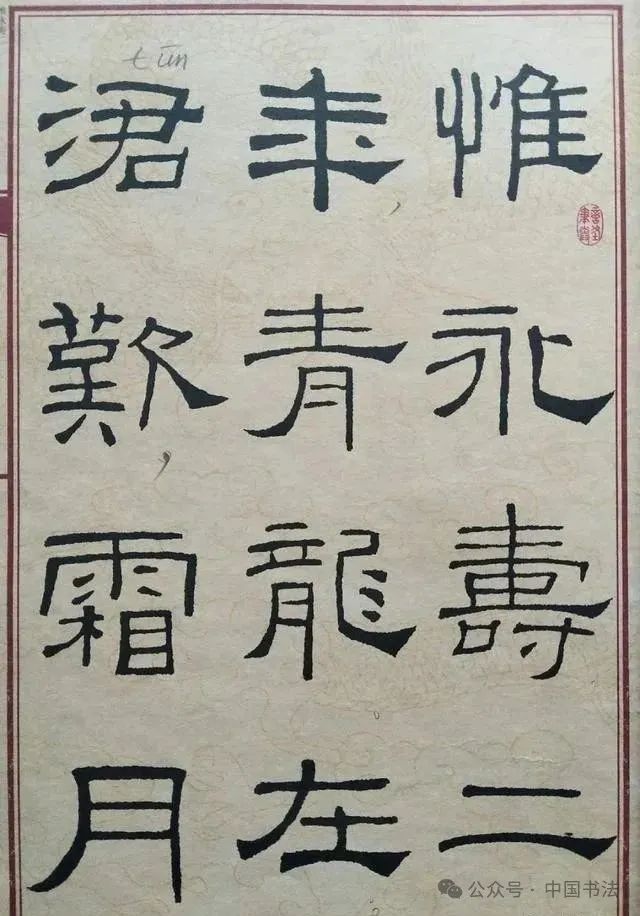 惟永壽二
年，青龍在
涒歎，霜月
tūn
公众号 · 中国书法